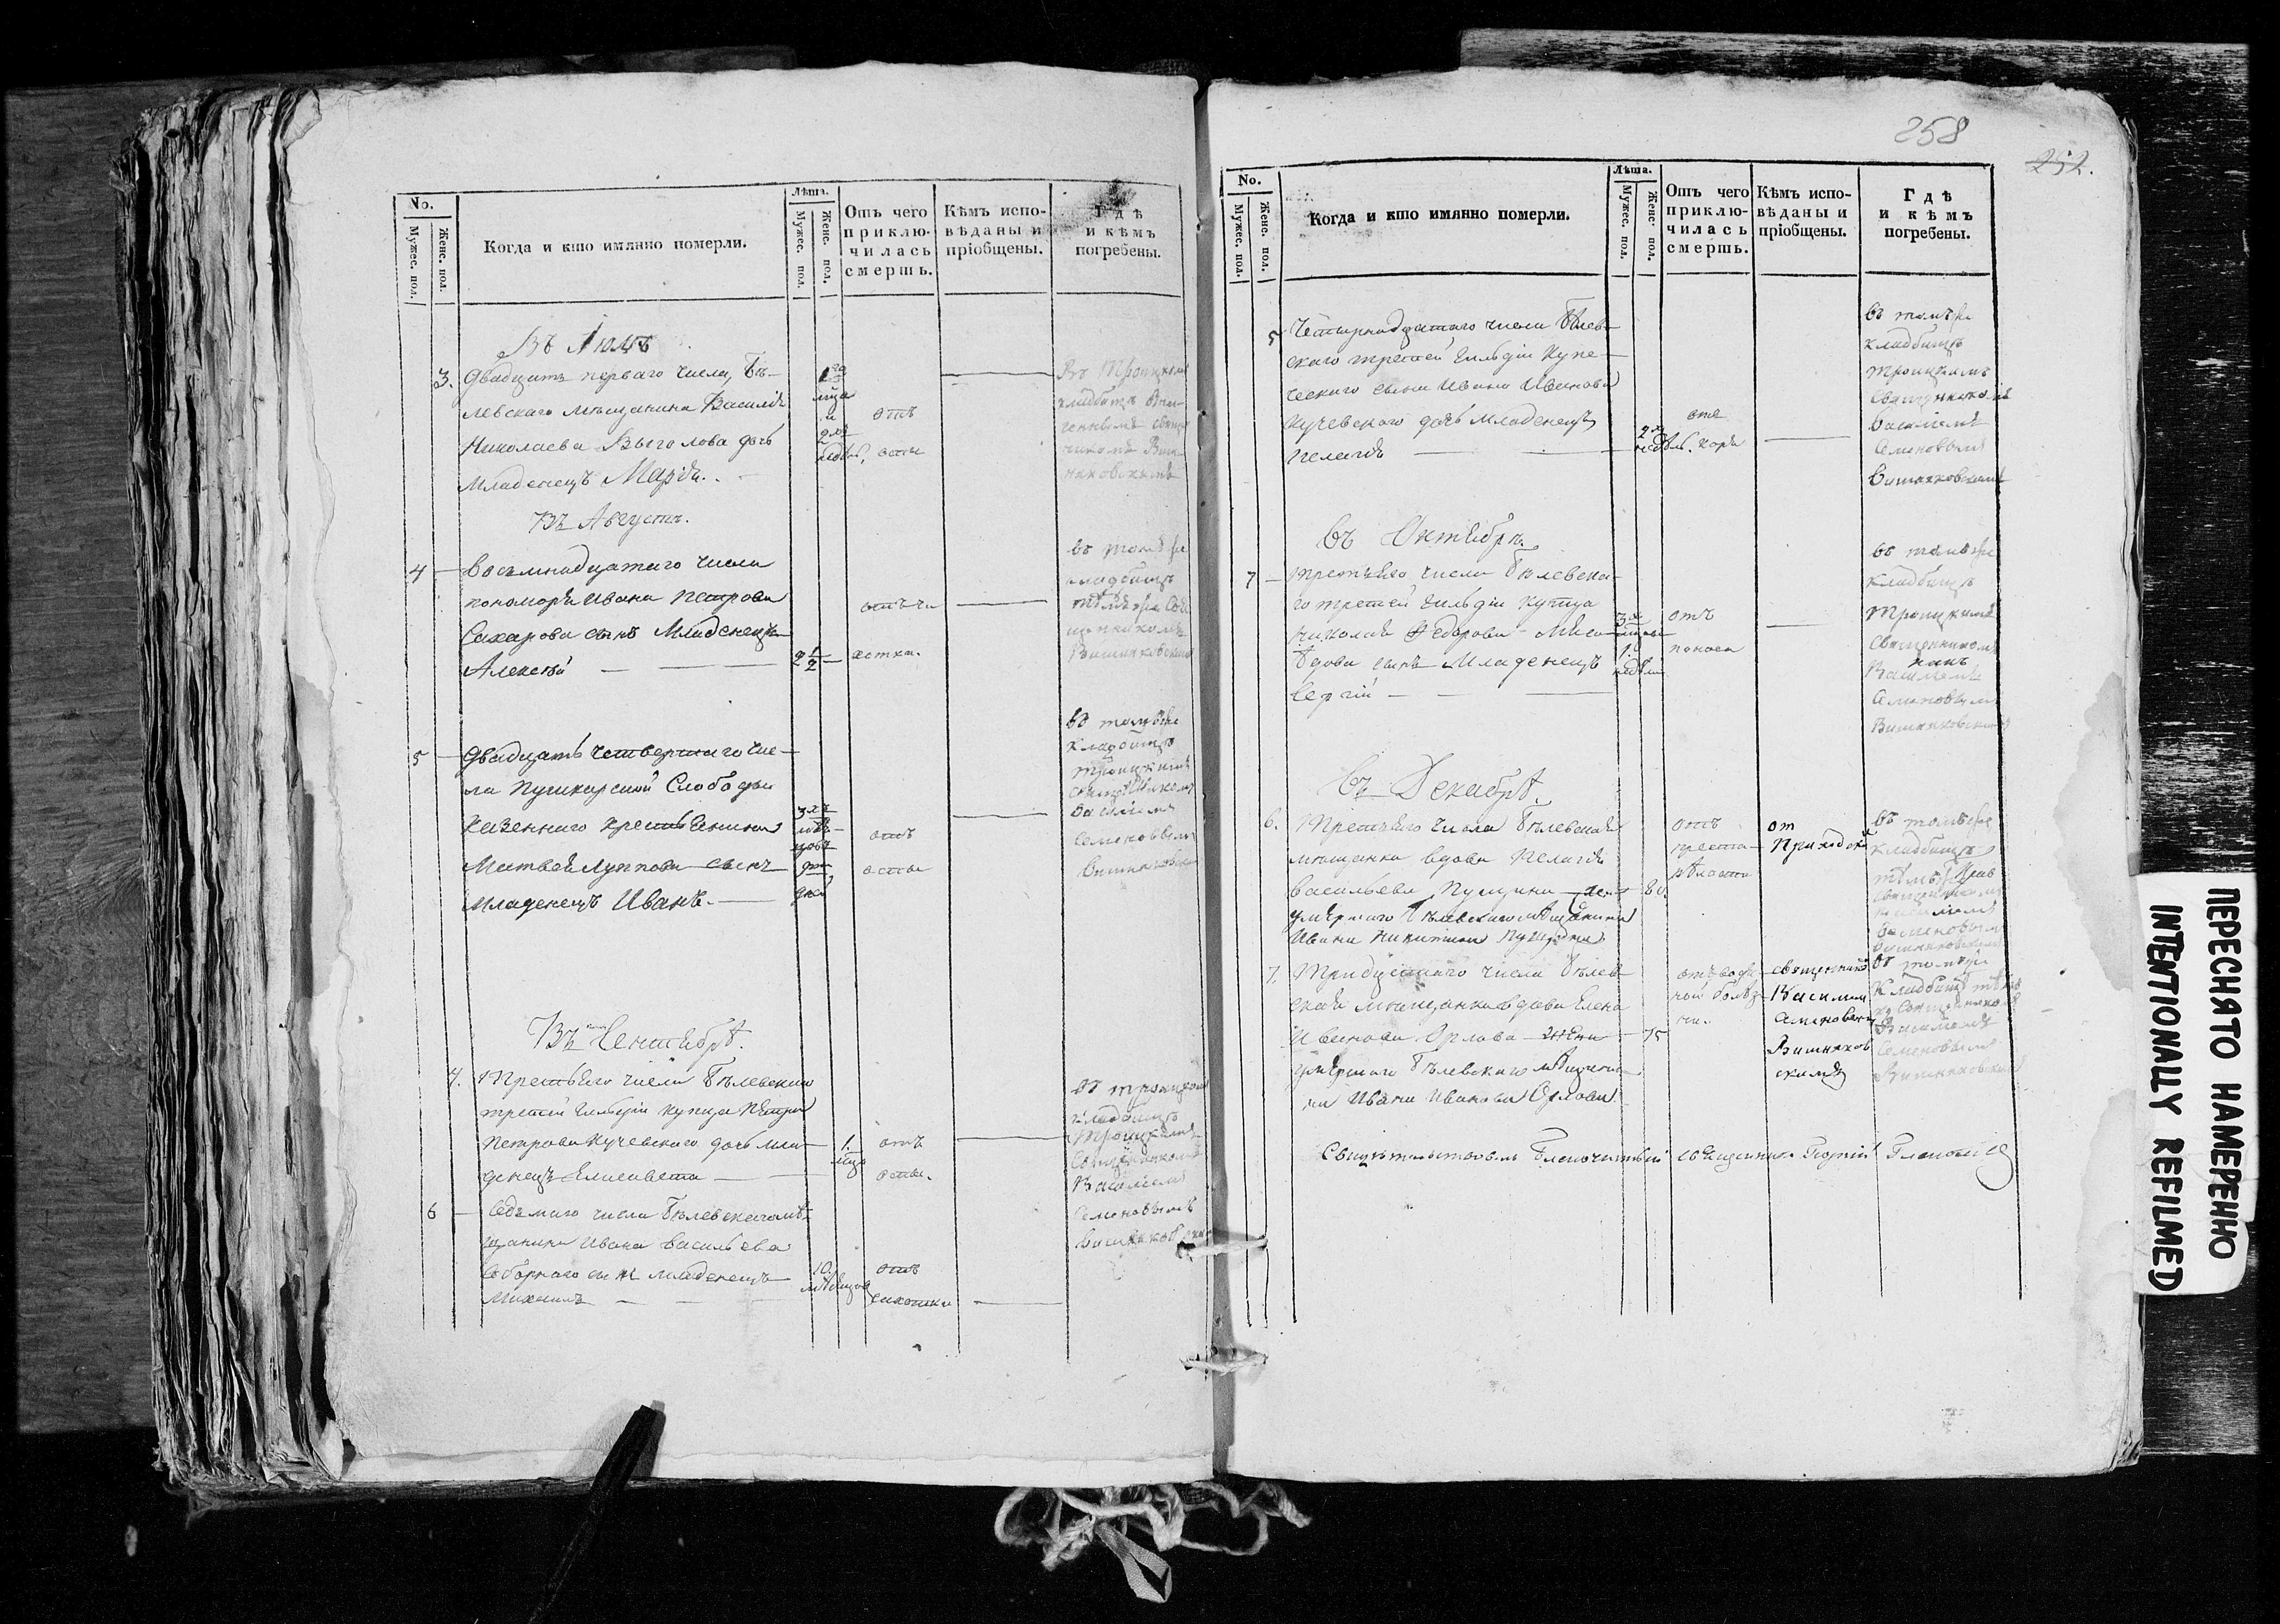 No.
Мужес. пол.
Женс. пол.
Когда и кто имянно померли.
Лѣта.
Мужес. пол.
Женс. пол.
Отъ чего
приклю-
чилась
смерть.
Кѣмъ испо-
вѣданы и
пріобщены.
Гдѣ
и кѣмъ
погребены.
Въ Іюлѣ
3. Двадцать перваго числа, Бѣ-
левскаго мѣщанина Василія
Николаева дочь
младенецъ Марія.
отъ
оспы
Въ Троицкомъ
кладбищѣ
Въ Августѣ.
4 Восемнадцатаго числа
пономаря Ивана Петрова
Сахарова сынъ Младенецъ
Алексѣй
2 1/2
отъ ча
хотки.
въ томъ же
кладбищѣ
Вишняковскимъ
5 Двадцать четвертаго чис-
ла Пушкарской Слободы
Казеннаго крестьянина
Матвея Луппова сынъ
Младенецъ Иванъ.
отъ
оспы
въ томъ же
кладбищѣ
Троицкимъ
священникомъ
Василіемъ
Семеновымъ
Въ Сентябрѣ.
4. Третьяго числа Бѣлевскаго
третей гильдіи купца Петра
Петрова Кучевскаго дочь мла-
денецъ Елисавета
1.
мца
отъ
оспы.
въ троицкомъ
кладбищѣ
Троицкимъ
Священникомъ
Василіемъ
Семеновымъ
6 Седьмаго числа Бѣлевскаго мѣ-
щанина Ивана Васильева
Соборнаго сынъ младенецъ
Михаилъ
10.
мѣсяцов
отъ
сихотки
258
252.
No.
Мужес. пол.
Женс. пол.
Когда и кто имянно померли.
Лѣта.
Мужес. пол.
Женс. пол.
Отъ чего
приклю-
чилась
смерть.
Кѣмъ испо-
вѣданы и
пріобщены.
Гдѣ
и кѣмъ
погребены.
5 Четырнадцатаго числа Бѣлев-
скаго третей гильдіи Купе-
ческаго сына Ивана Иванова
Кучевскаго дочь младенецъ
Пелагія
отъ
кори
въ томъ же
кладбищѣ
Троицкимъ
Священникомъ
Василіемъ
Семеновымъ
Вишняковскимъ
Въ Октябрѣ.
7 Третьяго числа Бѣлевска-
го третей гильдіи купца
Николая Федорова Мясо-
ѣдова сынъ Младенецъ
Сергій
отъ
поноса
въ томъ же
кладбищѣ
Троицкимъ
Священникомъ
Василіемъ
Семеновымъ
Вишняковскимъ
Въ Декабрѣ.
6. Третьяго числа Бѣлевская
мѣщанка вдова Пелагія
Васильева
умершаго Бѣлевскаго мѣщанина
Ивана Никитина
80.
отъ
преста-
рѣлости
от
Приходск
въ томъ же
кладбищѣ
7. Тридцатаго числа Бѣлев-
ская мѣщанка вдова Елена
Иванова Орлова жена
умершаго Бѣлевскаго мѣщани-
на Ивана Иванова Орлова.
75
отъ водя-
ной болѣз-
ни.
священник
Василіем
Семеновым
Вишняков
скимъ
въ том же
Василіемъ
Семеновымъ
Вишняковскимъ
Свидѣтельствовалъ Благочинный
ПЕРЕСНЯТО НАМЕРЕННО
INTENTIONALLY REFILMED